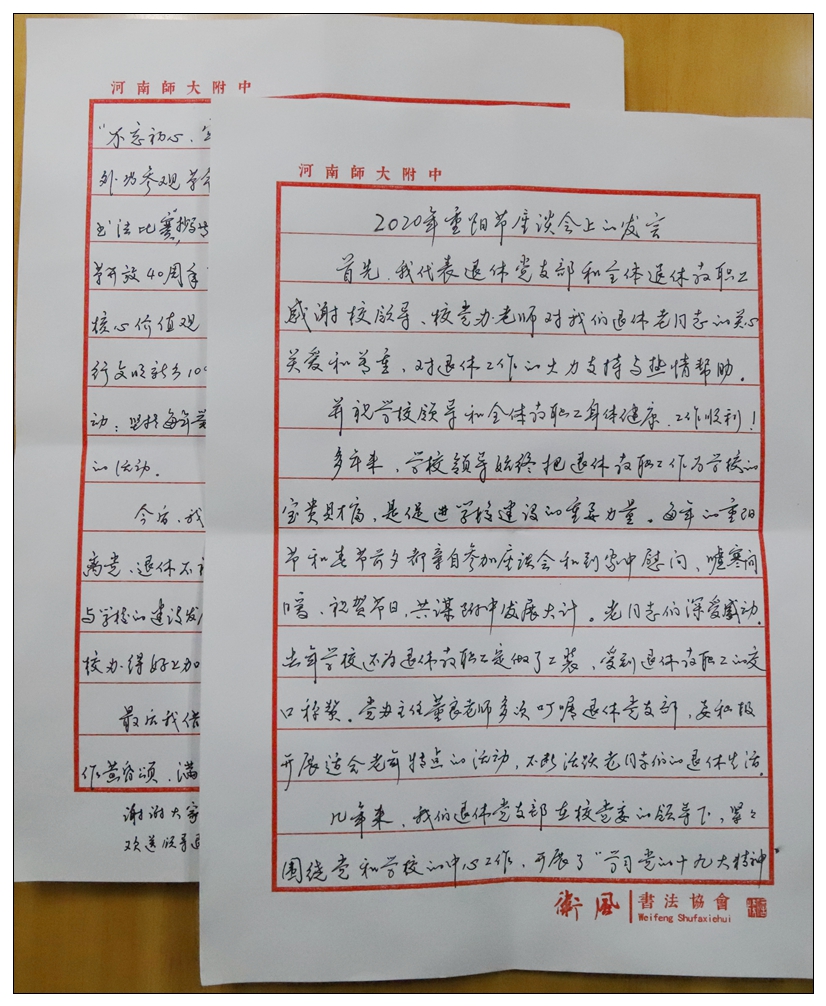 河南師大附中
"不忘初心、
外出参观革命
书法比赛,抄写
革开放40周年
核心价值观
行文明新乡10
动;坚持每年
的活动。
今后,我
离党、退休不
与学校的建设发
校办得好上加
最后我借
作黄昏颂,满
谢谢大家
欢送领导
河南師大附中
2020年重阳节座谈会上的发言
首先,我代表退休党支部和全体退休教职工
感谢校领导、校党办老师对我们退休老同志的关心
关爱和尊重,对退休工作的大力支持与热情帮助。
并祝学校领导和全体教职工身体健康、工作顺利!
多年来,学校领导始终把退休教职工作为学校的
宝贵财富,是促进学校建设的重要力量。每年的重阳
节和春节前夕都亲自参加座谈会和到家中慰问、嘘寒问
暖、祝贺节日、共谋附中发展大计。老同志们深受感动。
去年学校还为退休教职工定做了工装,受到退休教职工的交
口称赞。党办主任董良老师多次叮嘱退休党支部,要积极
开展适合老年特点的活动,不断活跃老同志们的退休生活。
几年来,我们退休党支部在校党委的领导下,紧々
围绕党和学校的中心工作,开展了"学习党的十九大精神"
衛風 書法協會
Weifeng Shufaxiehui